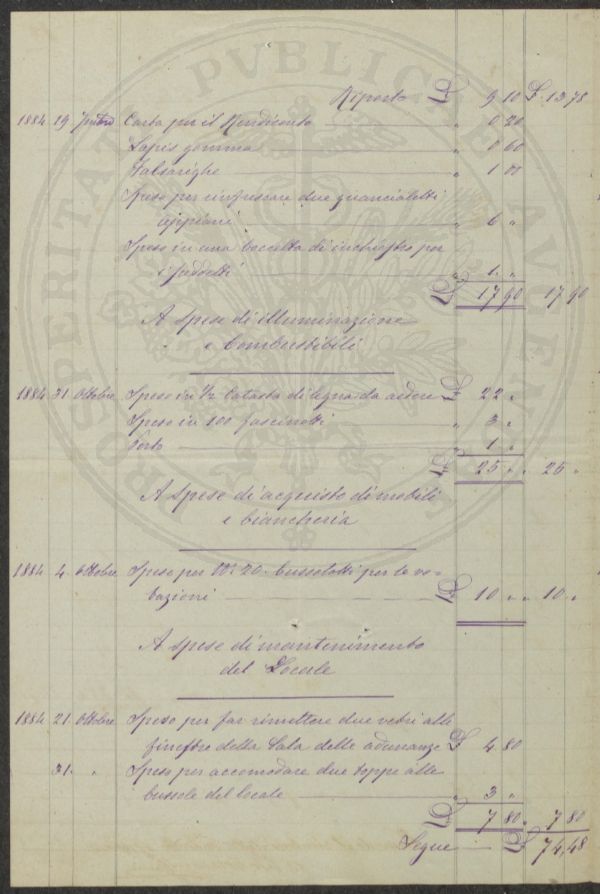 PROSPERITATI PVBLICAE AVGENDAE
Riporto £ 9 10 £ 13 78
1884 19 Carta per il Rendiconto " 0 20
Lapis gomma " 0 60
Falsarighe " 1 00
Spese per rinfrescare due guancialetti
" 6 "
Spese in una boccetta di inchiostro per
i suddetti " 1 "
£ 17 90 17 90
A spese di illuminazione
e Combustibili
1884 31 Ottobre Spese in ½ Catasta di legna da ardere £ 22 "
Spese in 100 fascinotti " 3 "
Porto " 1 "
£ 25 " 25 "
A spese di acquisto di mobili
e biancheria
1884 4 Ottobre Spese per No. 20 bussolotti per le vo-
tazioni £ 10 " 10 "
A spese di mantenimento
del Locale
1884 21 Ottobre Spese per far rimettere due vetri alle
finestre della Sala delle adunanze £ 4 80
31 " Spese per accomodare due toppe alle
bussole del locale " 3 "
£ 7 80 " 7 80
Segue £ 74,48